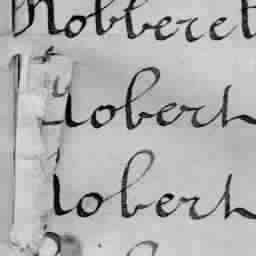 Robberet
Robert
Robert